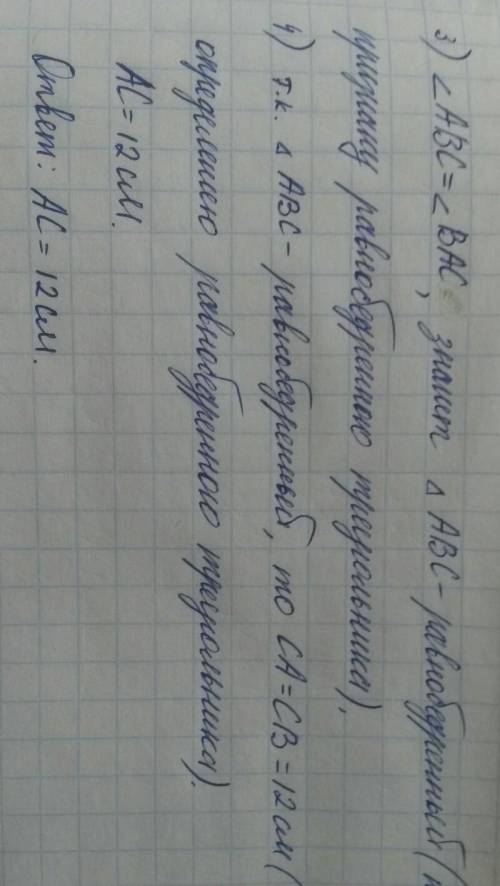 3) ∠ABC=∠BAC, значит ▵ ABC - равнобедренный (
признаку равнобедренного треугольника).
4) т.к. ▵ ABC - равнобедренный, то CA=CB=12 см (
определению равнобедренного треугольника).
AC=12 см.
Ответ: AC=12 см.